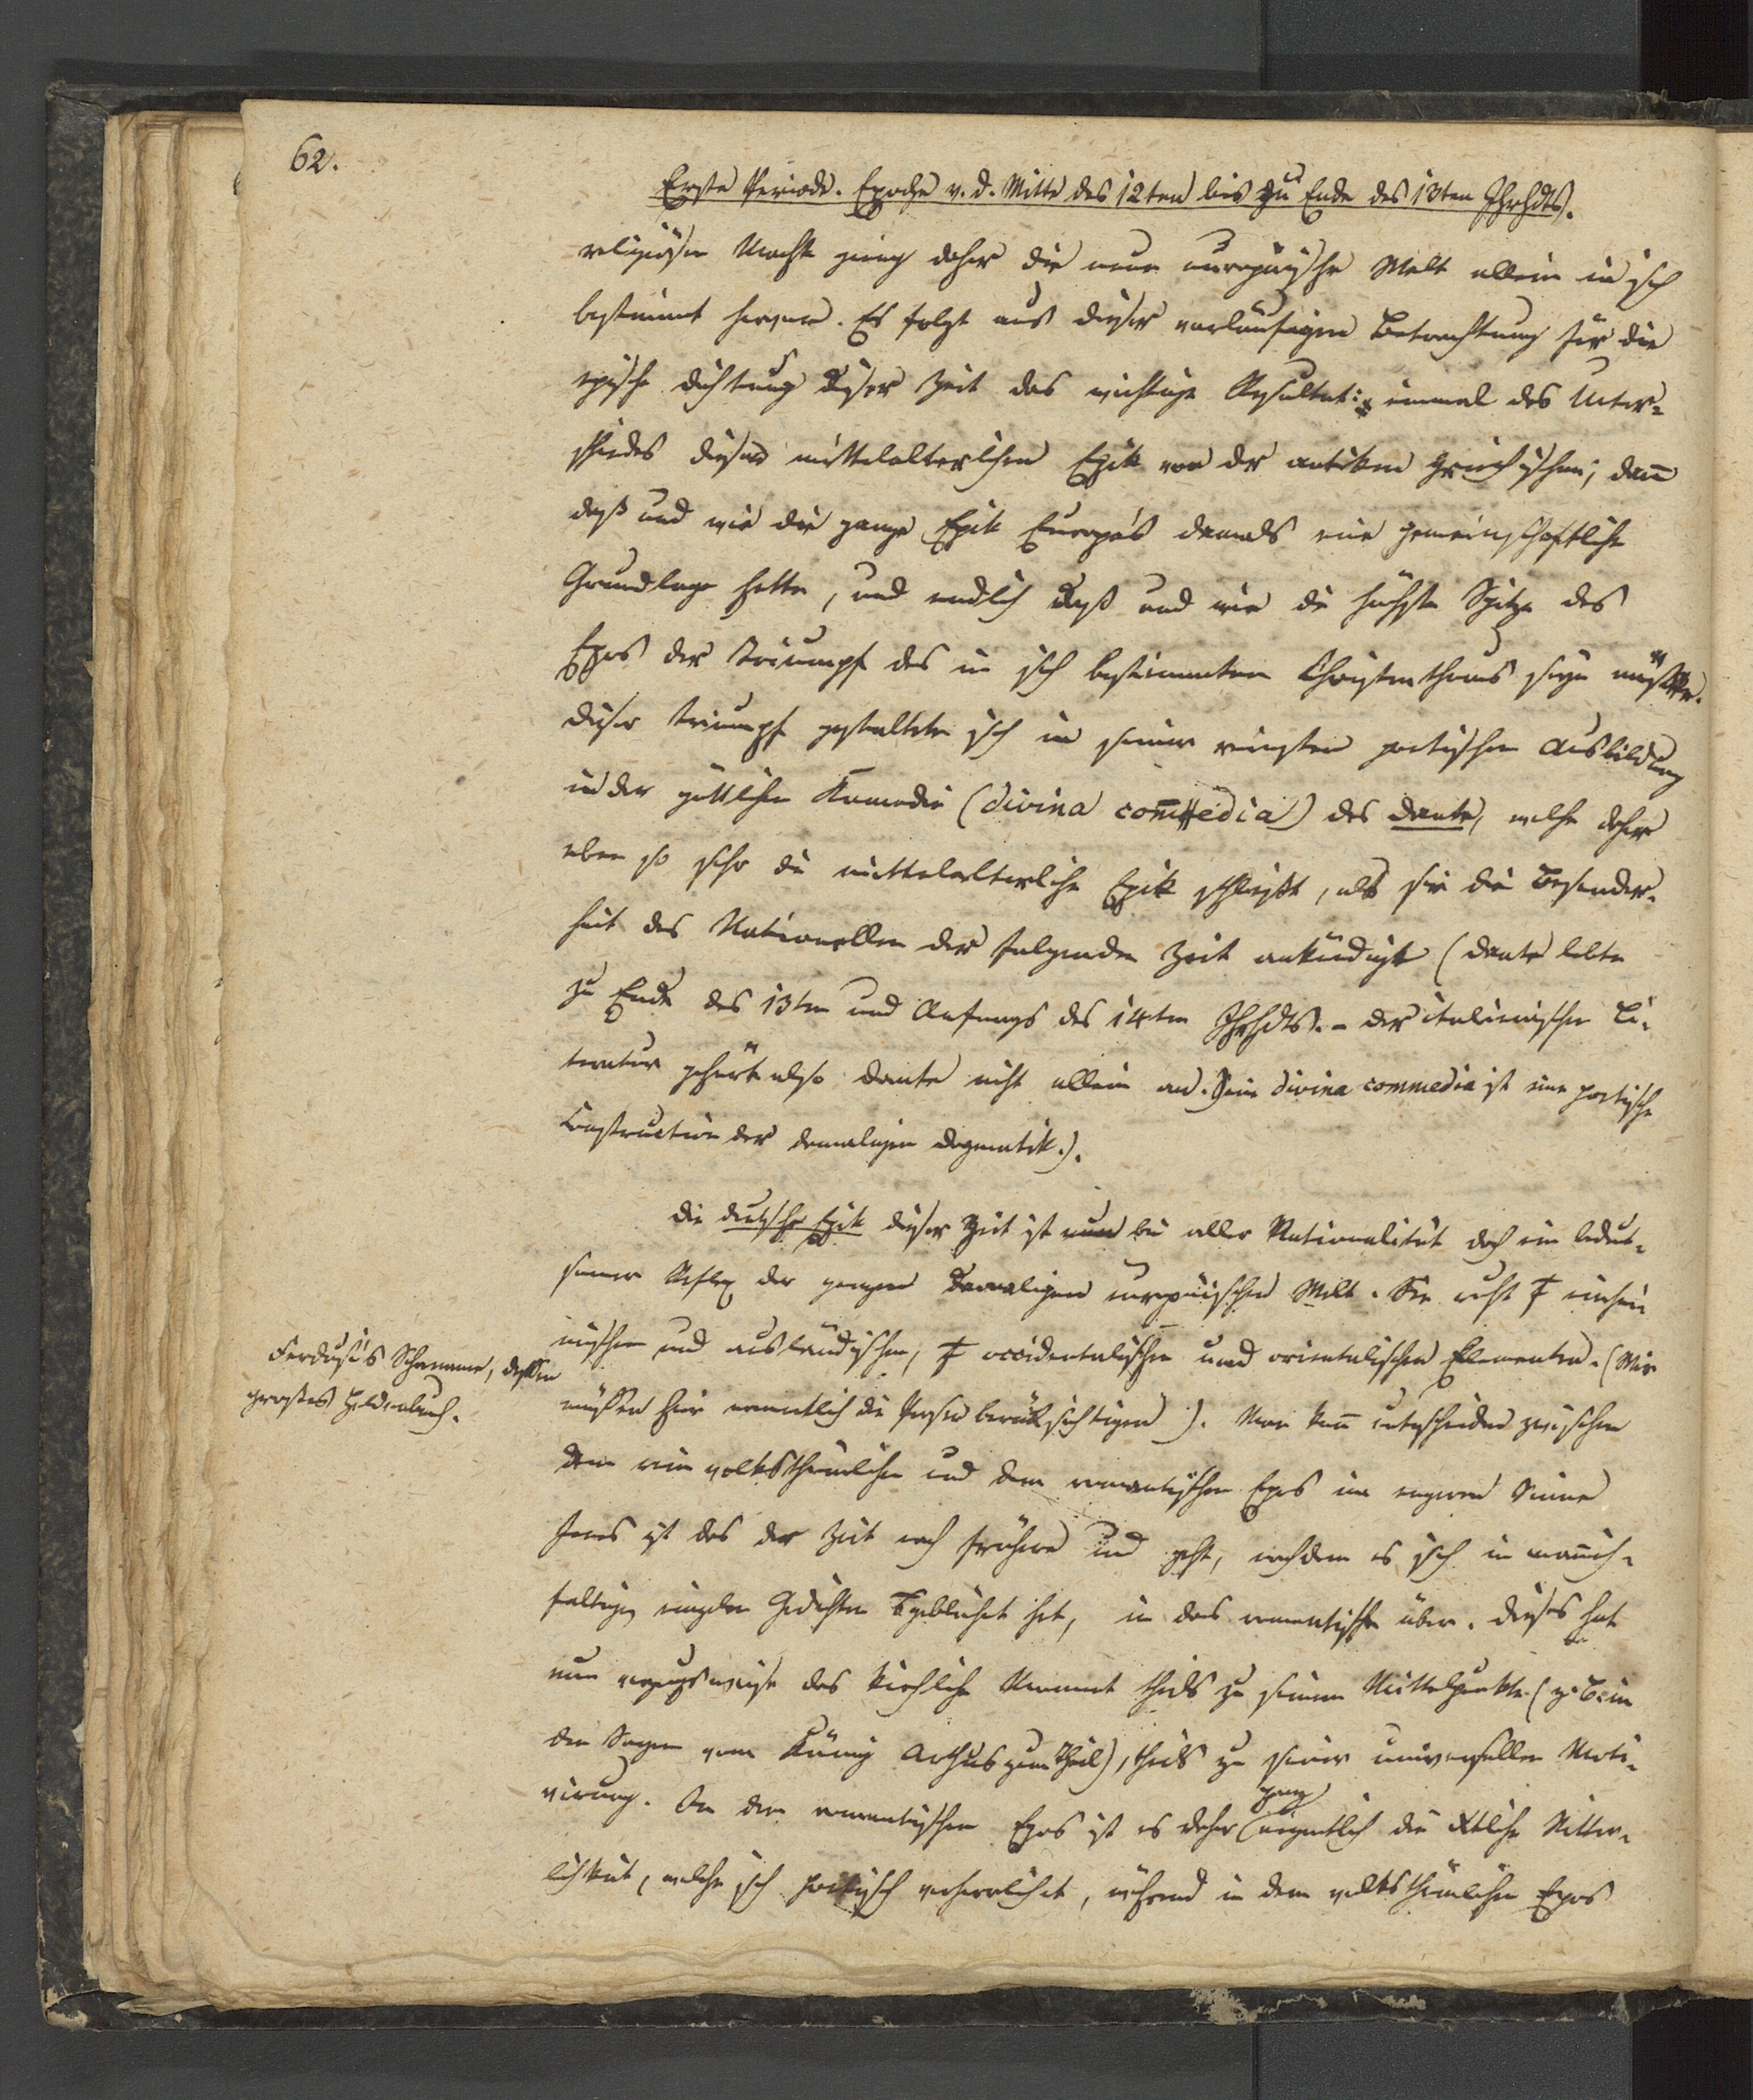 62.
Erste Periode. Epoche v. d. Mitte des 12ten bis zu Ende des 13ten Jhrhdts.
religiösen Macht ging daher die neue europäische Welt allein in sich
bestimmt hervor. Es folgt aus dieser vorläufigen Betrachtung für die
epische Dichtung dieser Zeit das wichtige Resultat: einmal des Unter-
schiedes dieser mittelalterlichen Epik von der antiken griechischen; dann
daß und wie die ganze Epik Europa's damals eine gemeinschaftliche
Grundlage hatte, und endlich daß und wie die höchste Spitze des
Epos der Triumpf des in sich bestimmten Christenthums seyn mußte.
Dieser Triumpf gestaltete sich in seiner reinsten poetischen Ausbildung
in der göttlichen Komedie (divina commedia) des Dante, welche daher
eben so sehr die mittelalterliche Epik schließt, als sie die Besonder-
heit des Nationellen der folgenden Zeit ankündigt (Dante lebte
zu Ende des 13ten und Anfangs des 14ten Jhrhdts. - Der italienischen Li-
teratur gehört also Dante nicht allein an. Seine divina commedia ist eine poetische
Construction der damaligen Dogmatik.).
Die deutsche Epik dieser Zeit ist nun bei aller Nationalität doch ein bedeut-
samer Reflex der ganzen damaligen europäischen Welt. Sie ruht einhei-
mischen und ausländischen, occidentalischen und orientalischen Elementen. (Wir
müssen hier namentlich die Perser berücksichtigen). Man kann unterscheiden zwischen
Ferdusi's Schaname, dessen
großes Heldenbuch.
dem rein volksthümlichen und dem romantischen Epos im engeren Sinne
Jenes ist das der Zeit nach frühere und geht, nachdem es sich in mannich-
faltigen einzelnen Gedichten hat, in das romantische über. Dieses hat
nun vorzugsweise das kirchliche Moment theils zu seinem Mittelpunkte (z. B. in
den Sagen vom König Arthus zum Theil), theils zu seiner universellen Moti-
virung. In dem romantischen Epos ist es daher ganz eigentlich die Xtliche Ritter-
lichkeit, welche sich poetisch verherrlicht, während in dem volksthümlichen Epos